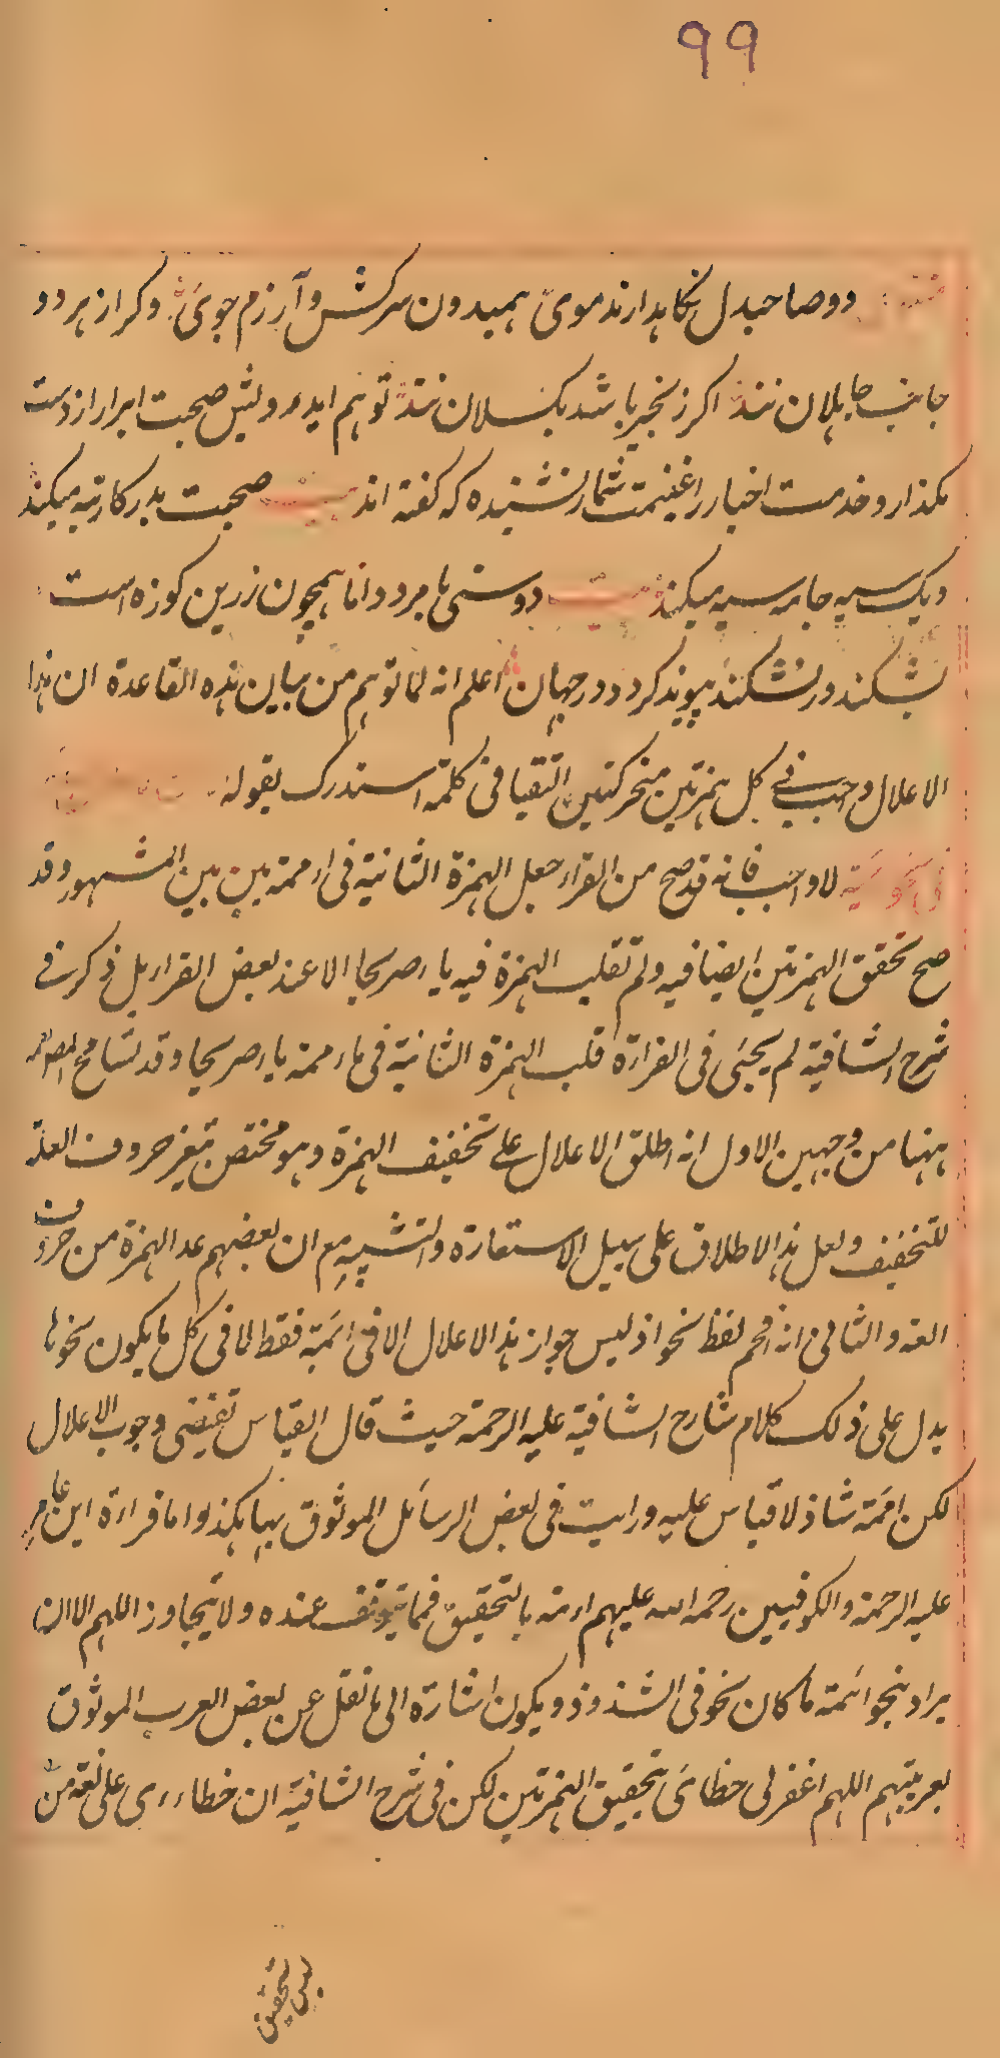 ۹۹
دو صاحبدل نکاهدارند موی همیدون سرکش و آزرم جوی وکر از هر دو
جانب جاهلان نند اکر زنجیر باشد بکسلان نند تو هم ای درویش صحبت ابرار از دست
مکذار و خدمت اخیار را غنیمت شمار نشنیده که کفته اند صحبت بد رکارتبه میکند
دیک سیه جامه سیه میکند بیت دوستی با مردم دانا همچون زرین کوزه است
بشکند ور نشکند پیوند کردد در جهان اعلم انه لما توهم من بیان هذه القاعدة ان هذا
الاعلال واجب فی کل همزتین متحرکتین التقیا فی کلمة استدرک بقوله
لا واجب فانه قد صح من القراء جعل الهمزة الثانیة فی اءمة بین بین المشهور وقد
صح تحقق الهمزتین ایضا فیه ولم تقلب الهمزة فیه یاء صریحا الا عند بعض القراء بل ذکر فی
شرح الشافیة لم یجئ فی القراءة قلب الهمزة الثانیة فی اءمة یاء صریحا وقد تسامح المص
ههنا من وجهین الاول انه اطلق الاعلال علی تخفیف الهمزة وهو مختص بتغیر حروف العلة
للتخفیف ولعل هذا الاطلاق علی سبیل الاستعارة والتشبیه مع ان بعضهم عد الهمزة من حروف
العلة والثانی انه اقحم لفظ نحو اذ لیس جواز هذا الاعلال الا فی ائمة فقط لا فی کل ما یکون نحوها
یدل علی ذلک کلام شارح الشافیة علیه الرحمة حیث قال القیاس تقتضی وجوب الاعلال
لکن ائمة شاذ لا قیاس علیه ورایت فی بعض الرسائل الموثوق بها هکذا واما قراءة ابن عامر
علیه الرحمة والکوفیین رحمه الله علیهم اءمة بالتحقیق فما یتوقف عنده ولا یتجاوز اللهم الا ان
یراد بنحو ائمة ما کان نحو فی الشذوذ ویکون اشارة الی ما نقل عن بعض العرب الموثوق
بعربیتهم اللهم اغفر لی خطائ بتحقیق الهمزتین لکن فی شرح الشافیة ان خطاءی علی لغة من
لیس تخفیف